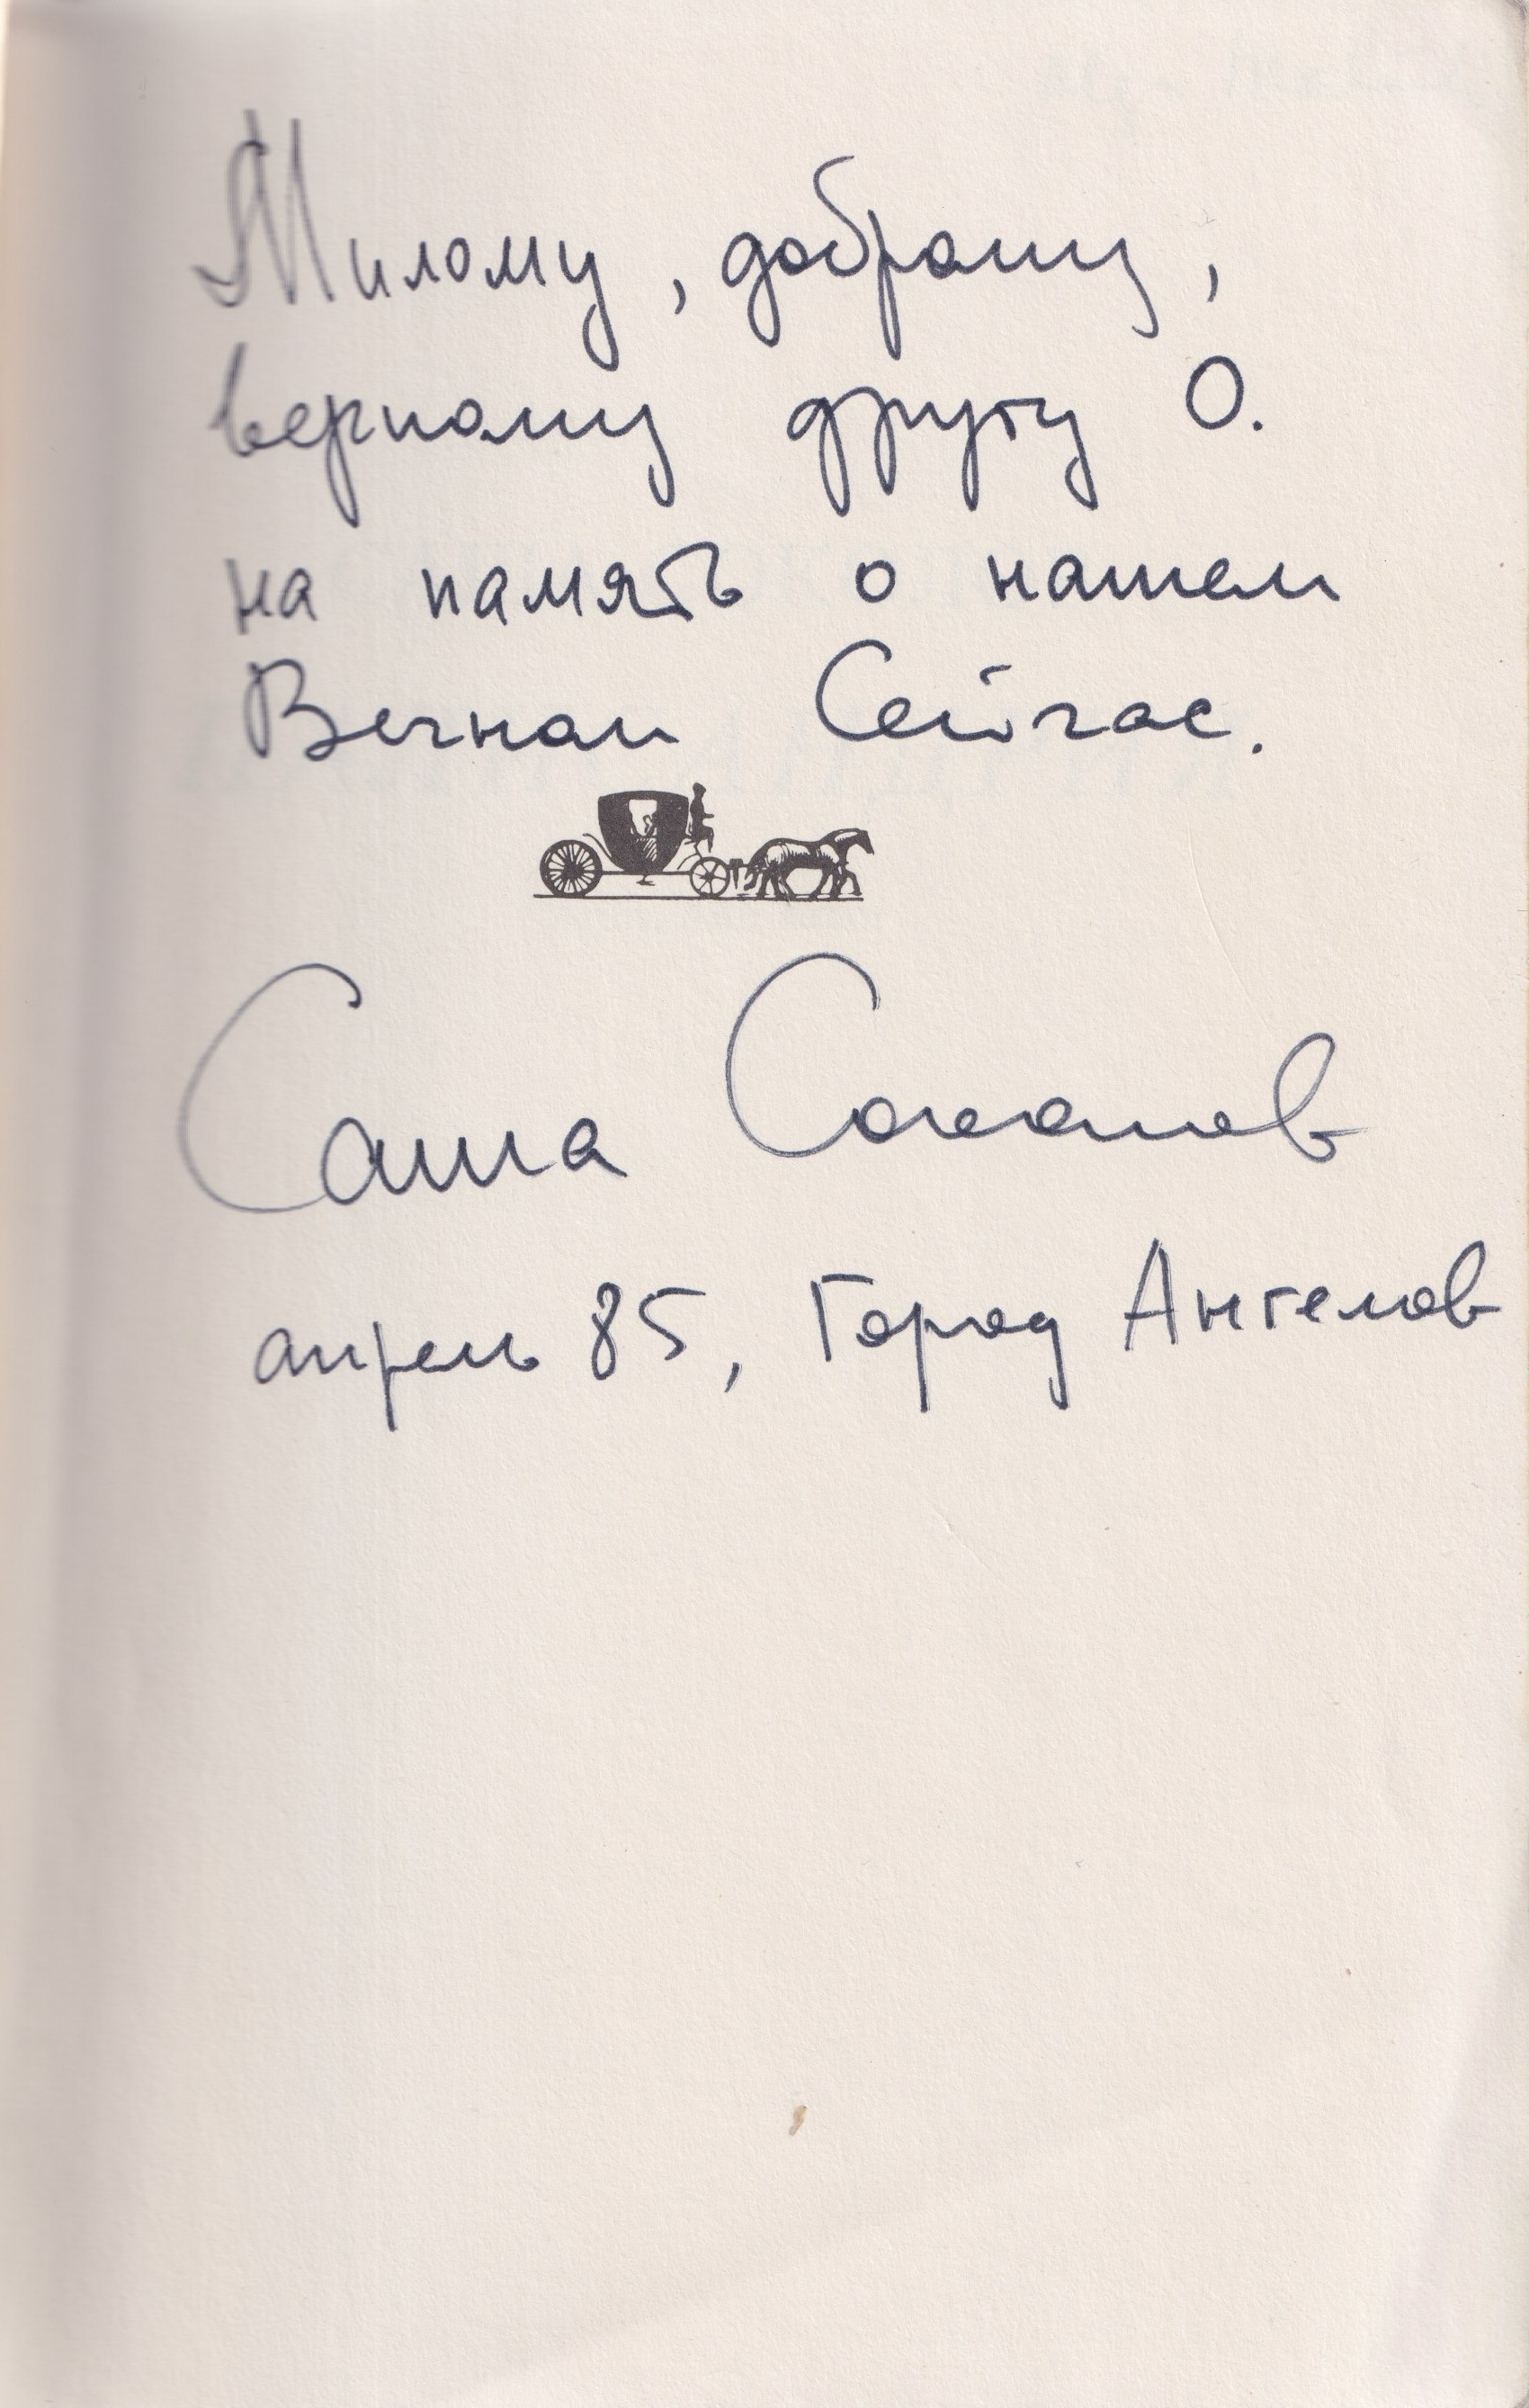 Милому, доброму,
верному другу О.
на память о нашем
Вечном Сейчас.
Саша Соколов
апрель 85, Город Ангелов